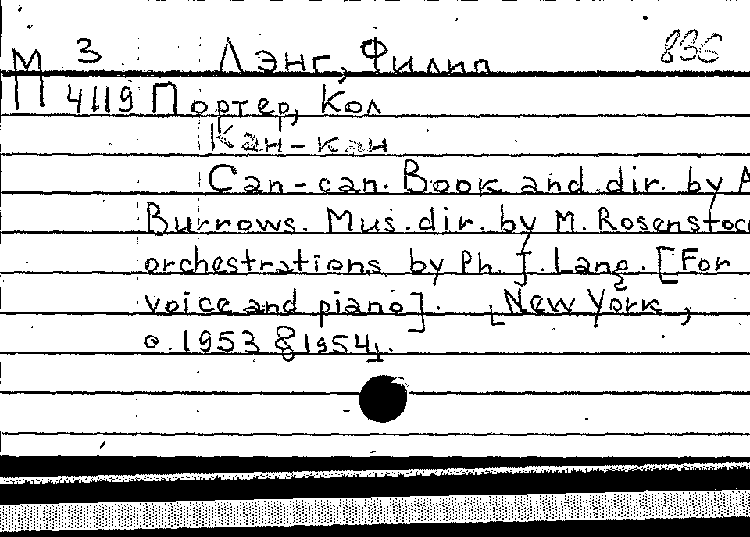 М 3 Лэнг, Филип 836
4119 Портер, Кол
Кан-кан
Can-can. Book and dir. by A
Burrows. Mus. dir. by M. Rosenstoc
orchestrations by Ph. J. Lang. [For
voice and piano]. [New York,
c. 1953 & 1954].